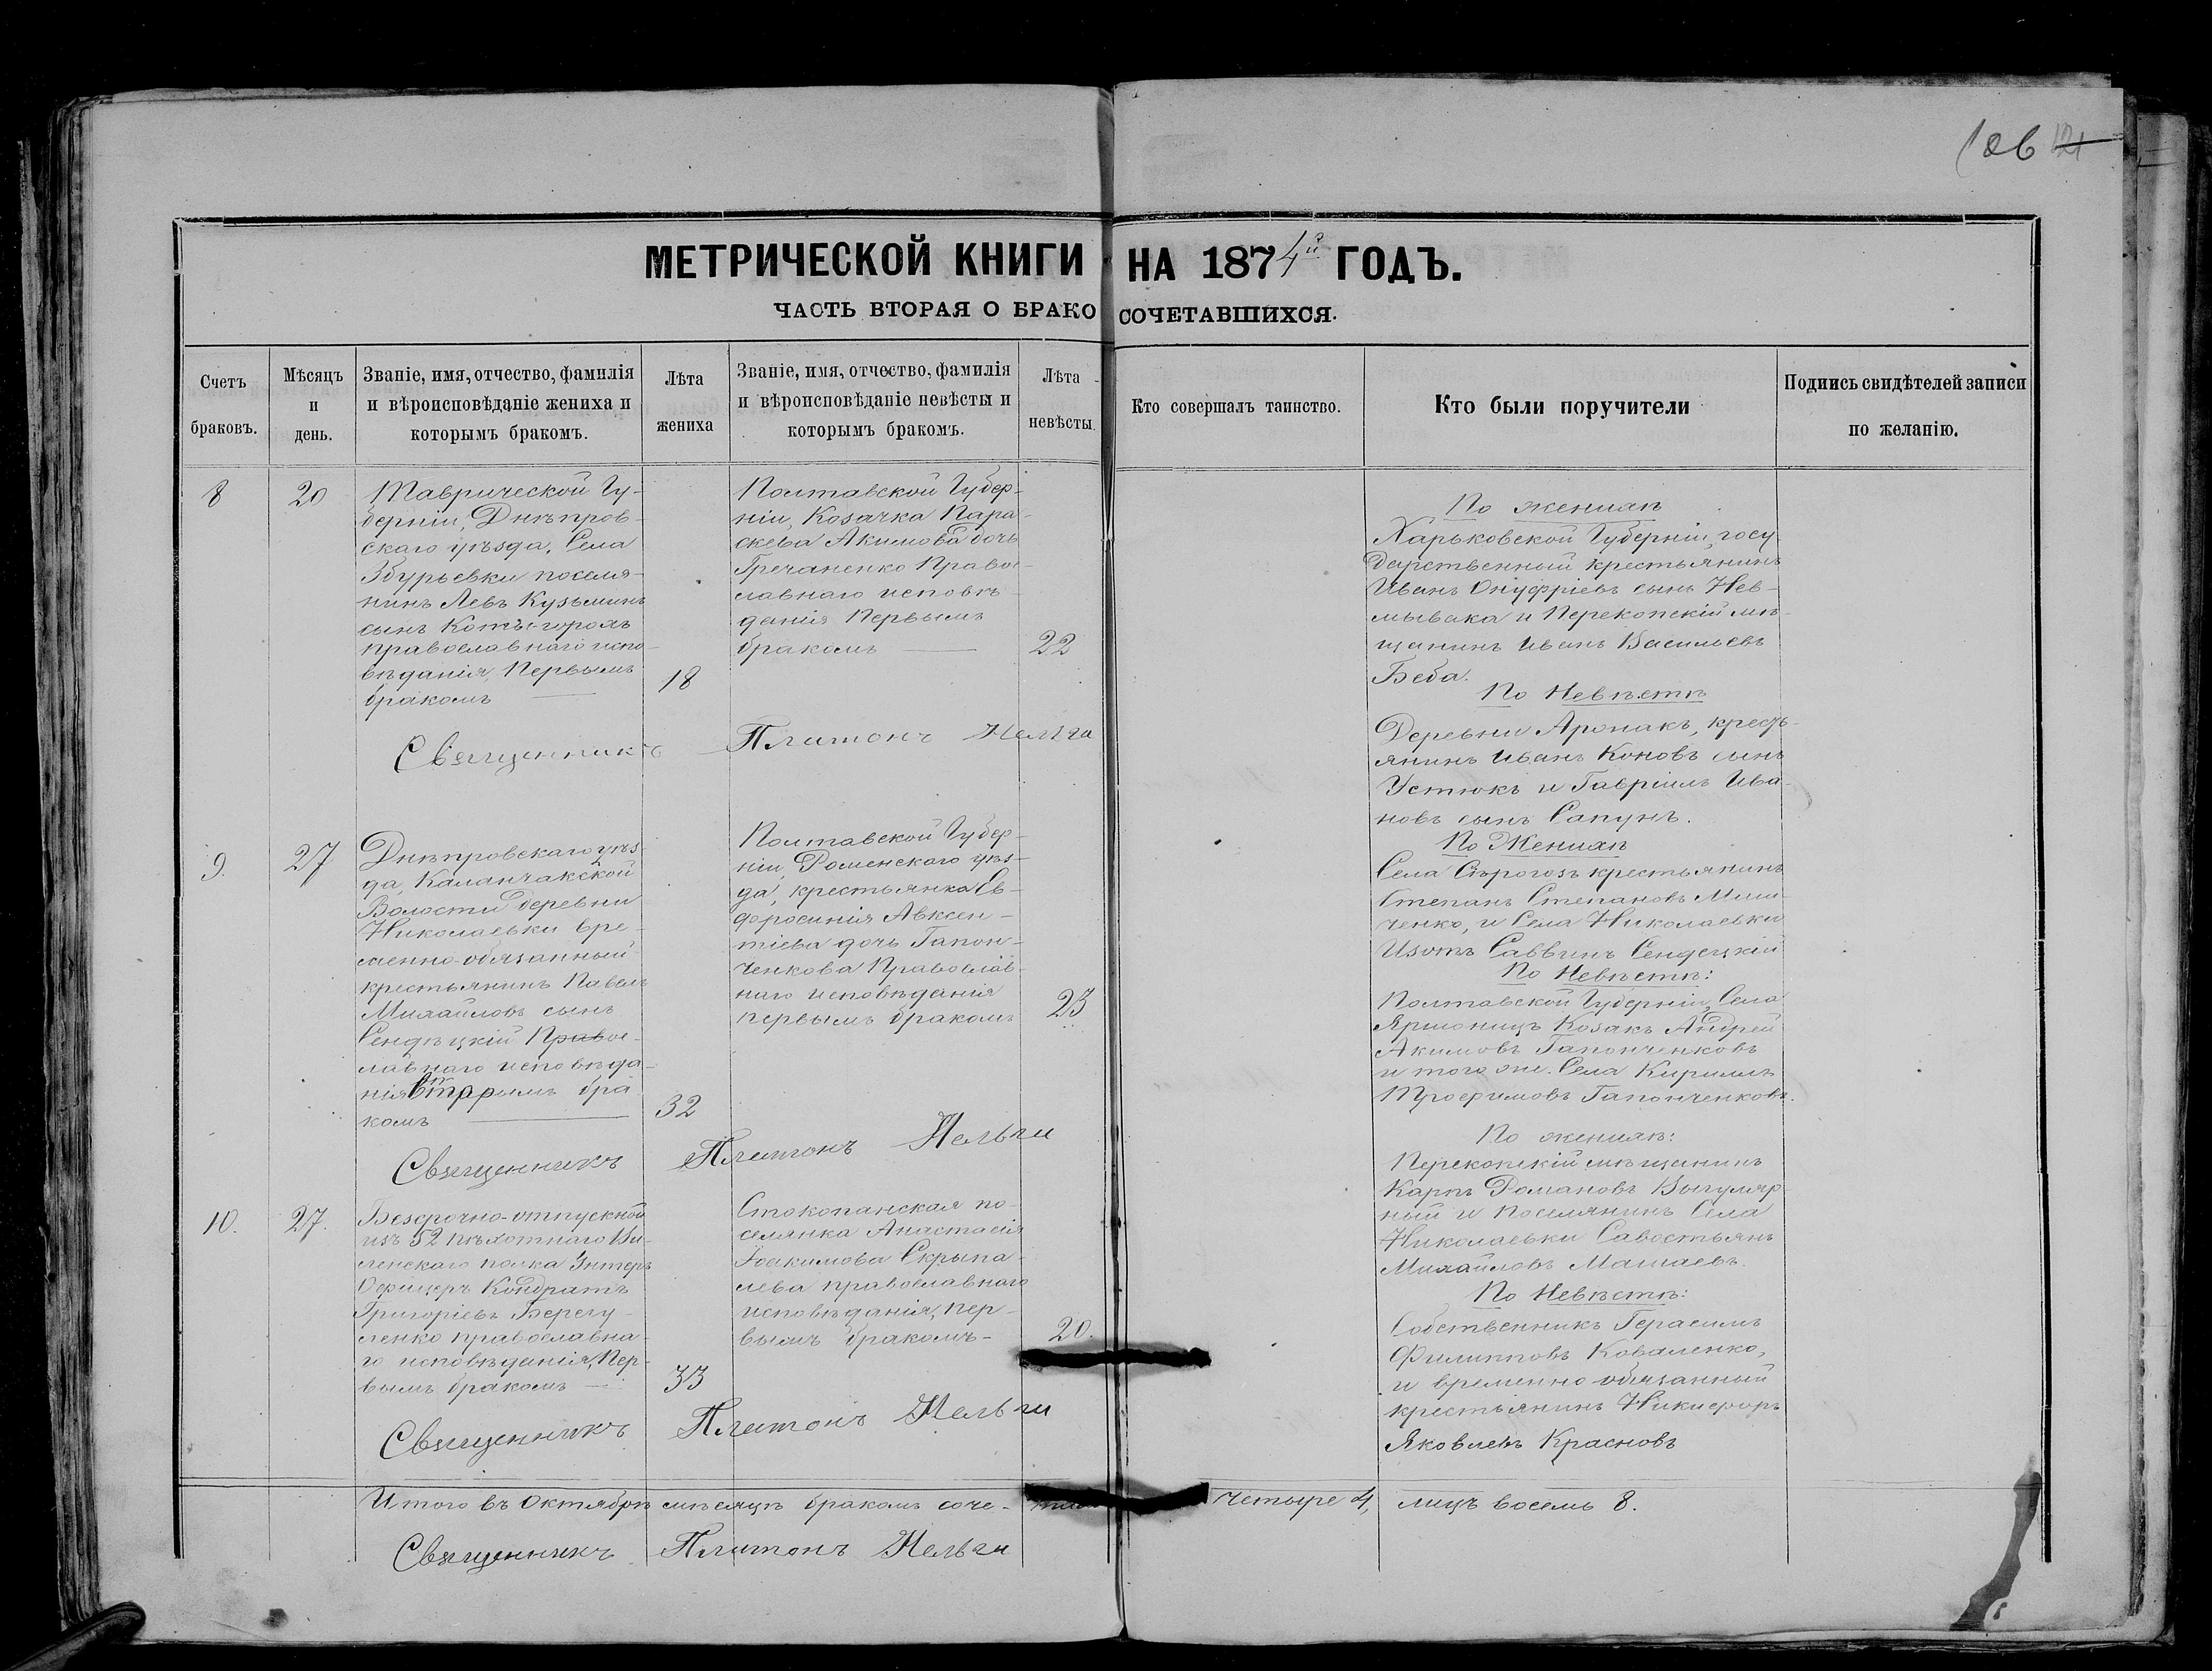 106 121
МЕТРИЧЕСКОЙ КНИГИ НА 1874й ГОДЪ.
ЧАСТЬ ВТОРАЯ О БРАКОСОЧЕТАВШИХСЯ.
Счетъ браковъ.
Мѣсяцъ и день.
Званіе, имя, отчество, фамилія
и вѣроисповѣданіе жениха и
которымъ бракомъ.
Лѣта жениха
Званіе, имя, отчество, фамилія
и вѣроисповѣданіе невѣсты и
которымъ бракомъ.
Лѣта невѣсты.
Кто совершалъ таинство.
Кто были поручители
Подпись свидѣтелей записи
по желанію.
8
20
Таврической Гу-
берніи, Днѣпров-
скаго уѣзда, Села
Збурьевки поселя-
нинъ Левъ Кузьминъ
сынъ
православнаго испо-
вѣданія, Первымъ
бракомъ
18
Полтавской Губер-
ніи, Козачка Пара-
скева Акимова дочь
Гречаненко Правос-
лавнаго исповѣ-
данія Первымъ
бракомъ
22
По женихѣ
Харьковской Губерніи, госу-
дарственный крестьянинъ
Иванъ Онуфріевъ сынъ Нев-
мывака и Перекопскій мѣ-
щанинъ Иванъ Васильевъ
Беба.
По Невѣстѣ
Деревни крестъ-
янинъ Иванъ Коновъ сынъ
Устюкъ и Гавріилъ Ива-
новъ сынъ Сапунъ.
Священникъ Платонъ
9.
27
Днѣпровскаго уѣз-
да, Каланчакской
Волости деревни
Николаевки вре-
менно-обязанный
крестьянинъ Павелъ
Михайловъ сынъ
Сендѣцкій Правос-
лавнаго исповѣда-
нія Вторымъ бра-
комъ
32
Полтавской Губер-
ніи, Роменскаго уѣз-
да, крестьянка Ев-
фросинія Авксен-
тіева дочь Гапон-
ченкова Православ-
наго исповѣданія
первымъ бракомъ
23
По Женихѣ
Села Сѣрогозъ крестьянинъ
Степанъ Степановъ
ченко, и Села Николаевки
Изотъ Саввинъ Сендецкій
По Невѣстѣ:
Полтавской Губерніи, Села
Козакъ Андрей
Акимовъ Гапонченковъ
и того же Села Кириллъ
Трофимовъ Гапонченковъ.
Священникъ Платонъ
10.
27.
Безсрочно-отпускной
изъ 52 пѣхотнаго Ви-
ленскаго полка Унтеръ
Офицеръ Кондратъ
Григоріевъ Берегу-
ленко православна-
го исповѣданія, Пер-
вымъ бракомъ
33
Стокопанская по-
селянка Анастасія
Іоакимова Скрыпа-
лева православнаго
исповѣданія, пер-
вымъ бракомъ-
20.
По женихѣ:
Перекопскій мѣщанинъ
Карпъ Романовъ Выгуляр-
ный и поселянинъ Села
Николаевки Савостьянъ
Михайловъ
По Невѣстѣ:
Собственникъ Герасимъ
Филипповъ Коваленко,
и временно обязанный
крестьянинъ Никифоръ
Яковлевъ Красновъ
Священникъ Платонъ
Итого въ Октябрѣ мѣсяцѣ бракомъ соче- четыре 4, лицъ восемь 8.
Священникъ Платонъ